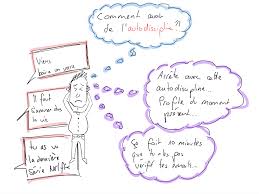 Comment avoir
de l'autodiscipline ?
Viens
boire un verre
Il faut
s'amuser dans
la vie
tu as vu
la dernière
série Netflix
Arrête avec cette
autodiscipline...
Profite du moment
présent...
Ça fait 10 minutes
que tu n'as pas
vérifié tes emails...